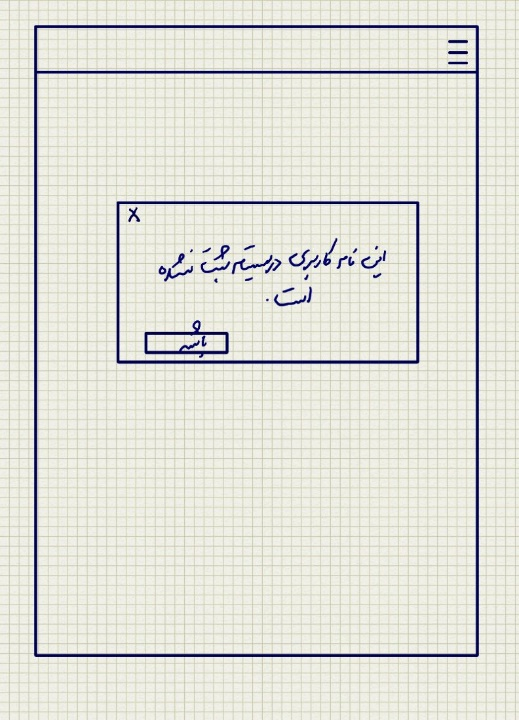 X
این نام کاربری در سیستم ثبت نشده
است.
باشه